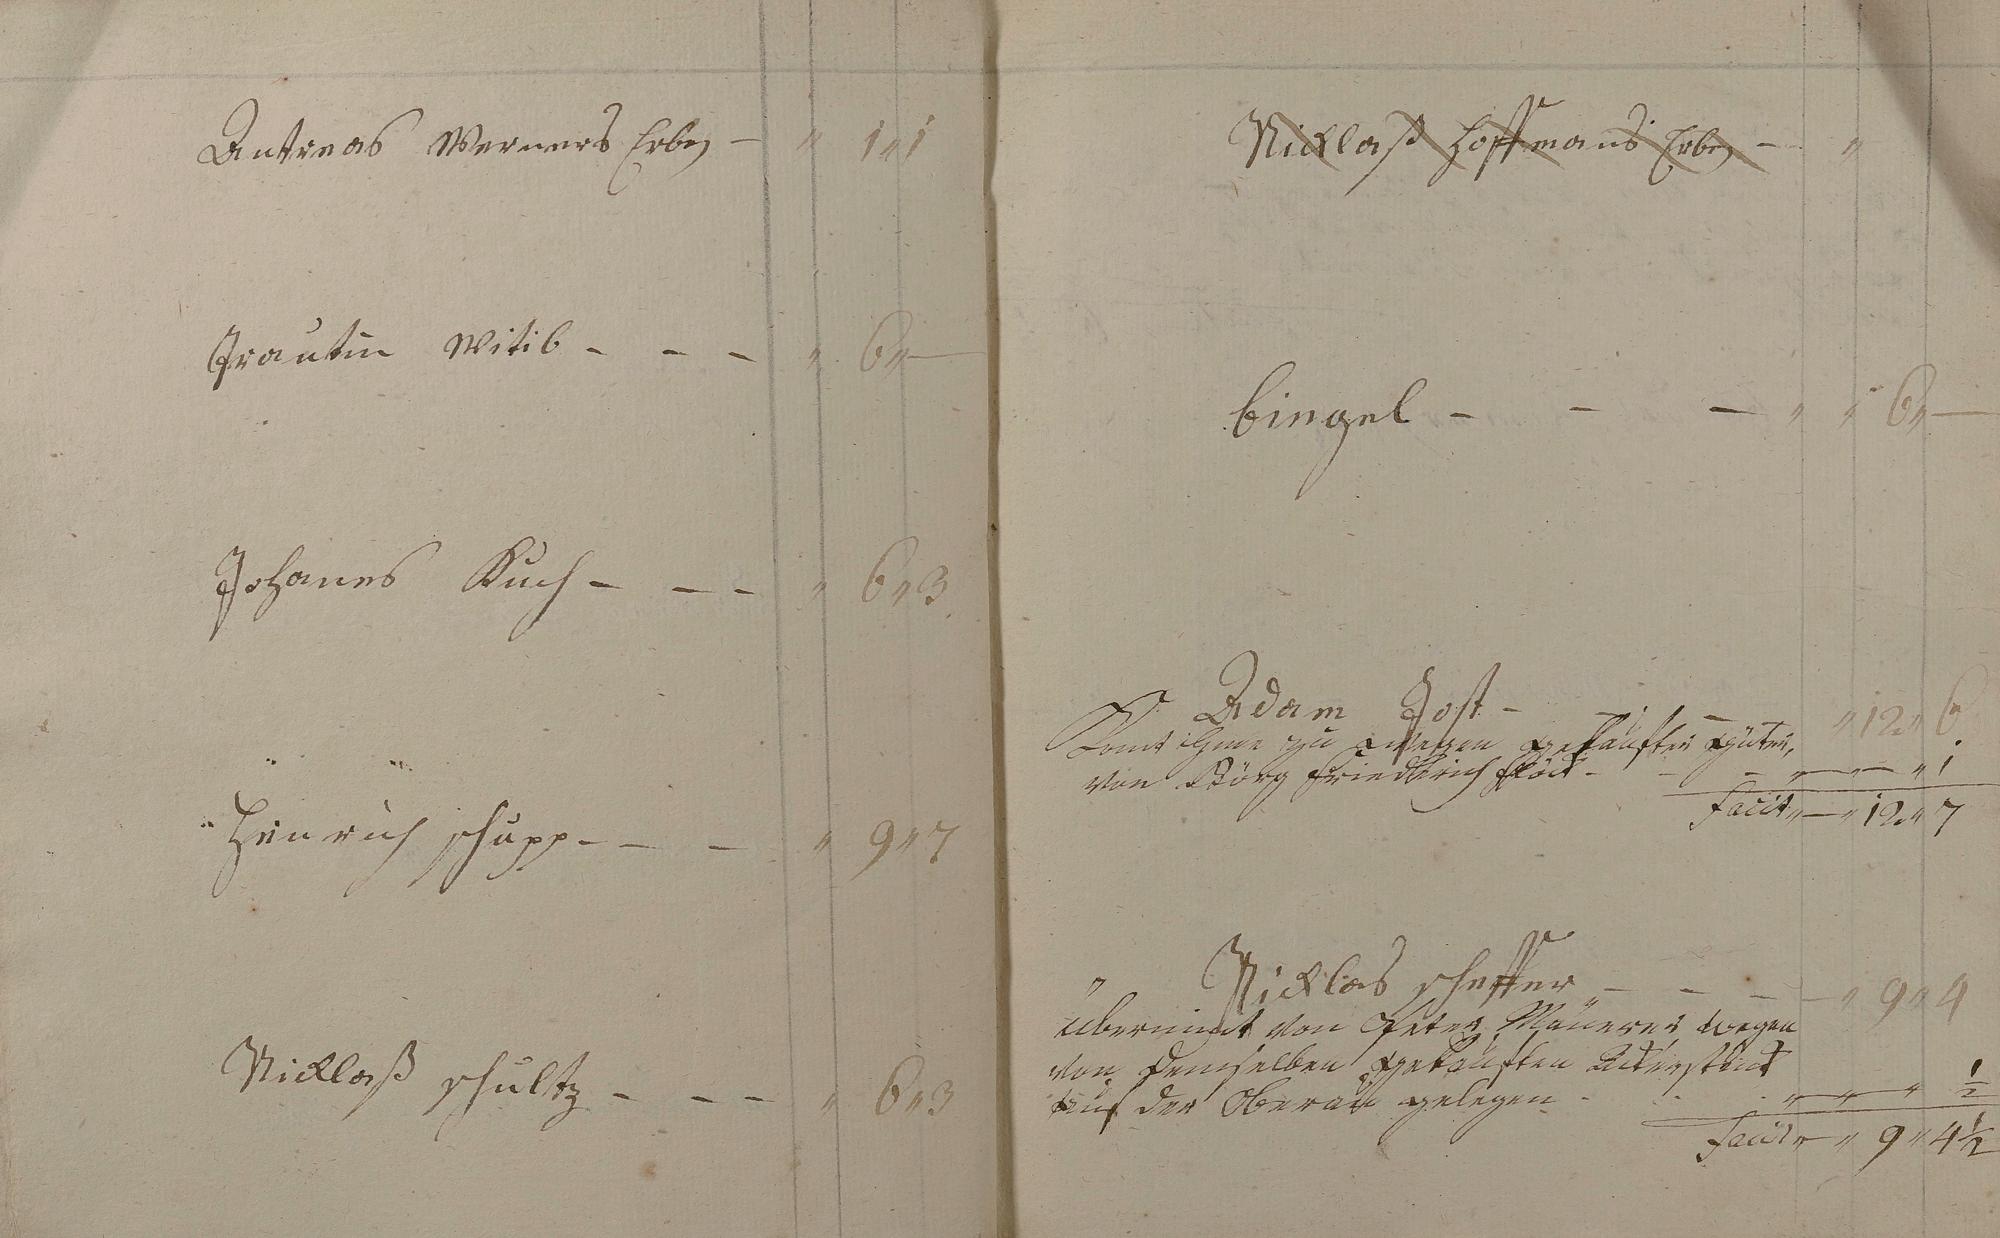 Antreas Werners Erben — " 1 " 1
Trautin Witib - - - " 6 " —
Johanes Ruch - - - " 6 " 3
Henrich Schupp - - - " 9 " 7
Nicklaß Schultz - - - " 6 " 3
Nicklaß Hoffmans Erben - "
Bingel - - - " " 6 " —
Adam Jost - - " 12 " 6
Komt ihme zu wegen gekaufter güter,
von Görg Friedrich - - " — " — " 1
Facit " — " 12 " 7
Nicklas Scheffer - - - - " 9 " 4
übernimt von Peter Mäurer wegen
von demselben gekauften Ackerstück
auf der Oberau gelegen - " — " — " ½
Facit " — " 9 " 4½